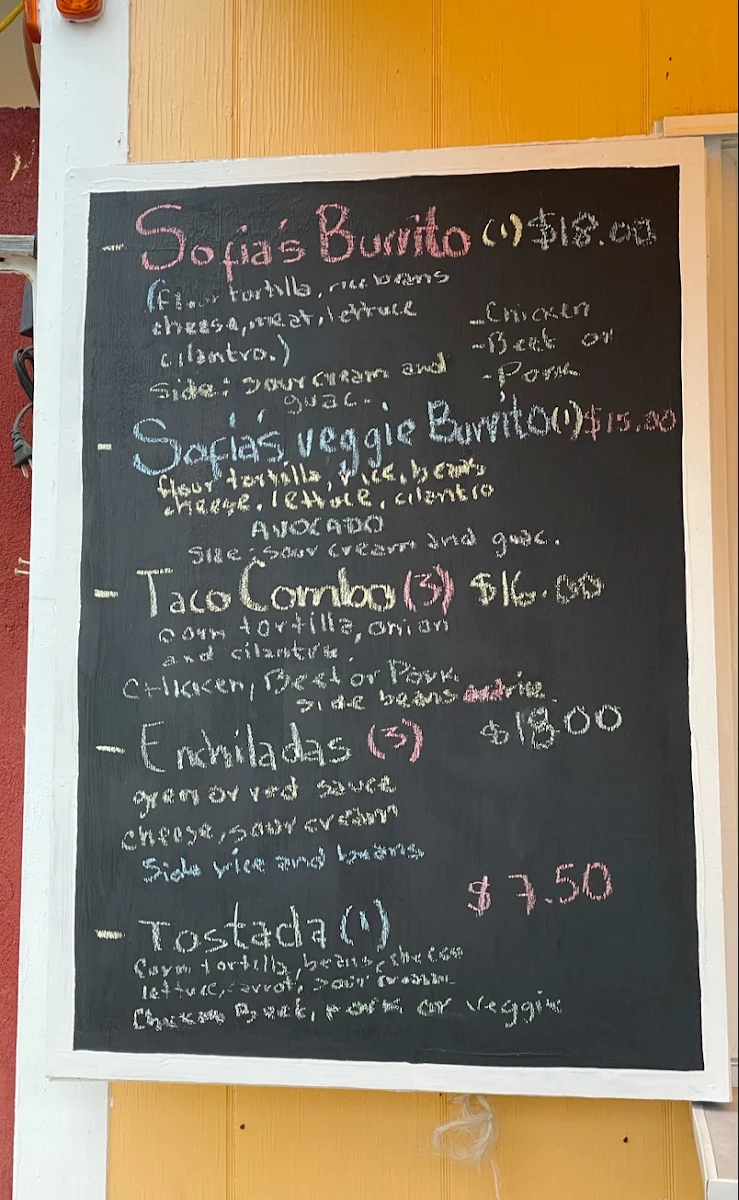 - Sofia's Burrito (1) $18.00
(flour tortilla, rice beans
cheese, meat, lettuce
cilantro.)
- Chicken
- Beef or
- Pork
side: sour cream and
guac.
- Sofía's veggie Burrito (1) $15.00
flour tortilla, rice, beans
cheese, lettuce, cilantro
AVOCADO
side: sour cream and guac.
- Taco Combo (3) $16.00
corn tortilla, onion
and cilantro.
Chicken, Beef or Pork
side beans and rice
- Enchiladas (3) $18.00
green or red sauce
cheese, sour cream
Side rice and beans
$7.50
- Tostada (1)
Corn tortilla, beans, cheese
lettuce, carrot, sour cream
Chicken Beef, pork or veggie